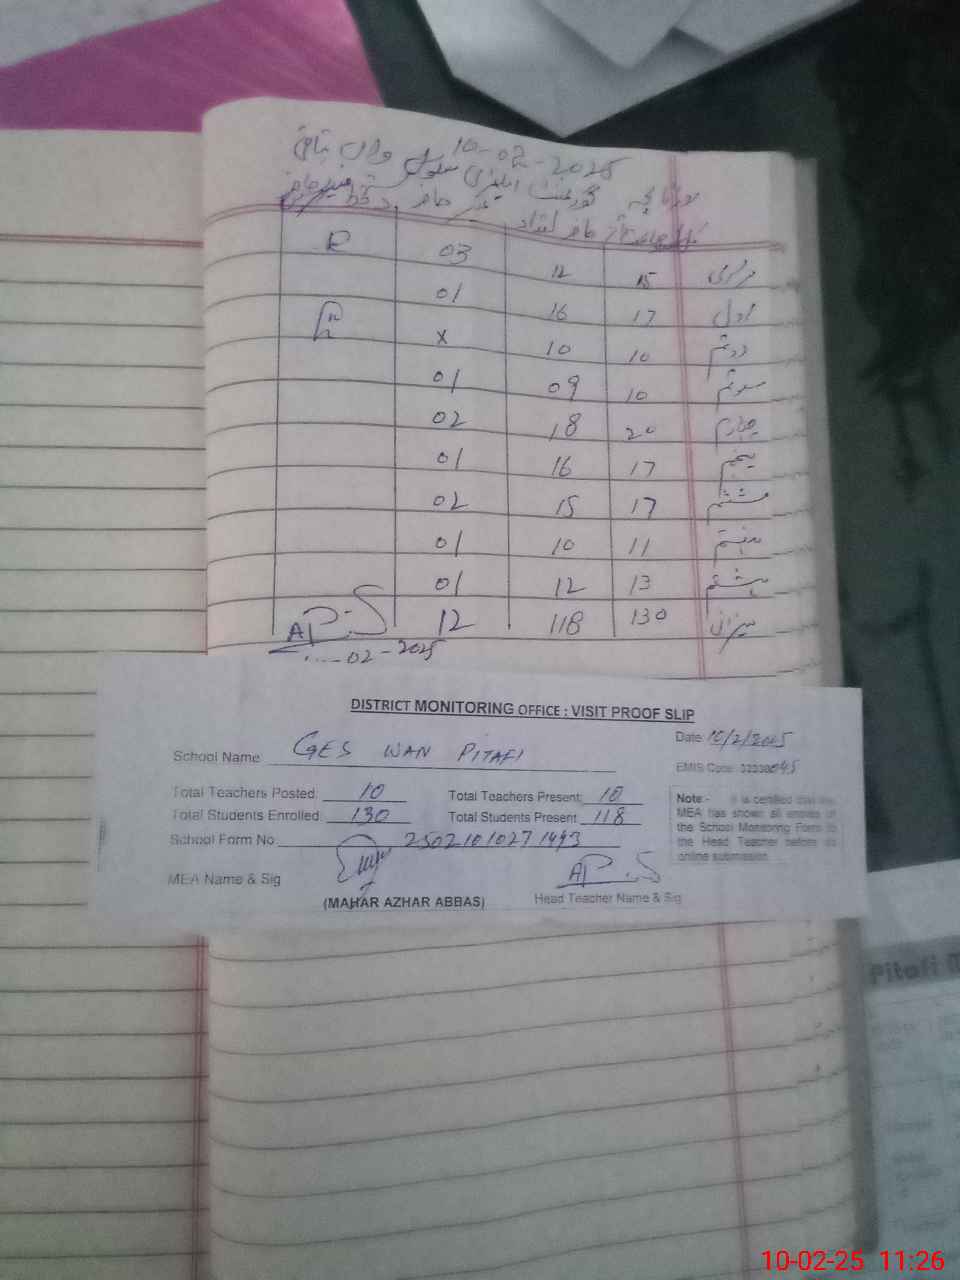 10-02-2025
گورنمنٹ ایلیمنٹری سکول واں پتافی
03 12 15
اول 17 16 01
دوئم 10 10 x
سوئم 10 09 01
چہارم 20 18 02
پنجم 17 16 01
ششم 17 15 02
ہفتم 11 10 01
ہشتم 13 12 01
میزان 130 118 12
02-2025
DISTRICT MONITORING OFFICE : VISIT PROOF SLIP
Date 10/2/2025
School Name GES WAN PITAFI
EMIS Code: 32330045
Total Teachers Posted: 10 Total Teachers Present 10
Total Students Enrolled 130 Total Students Present 118
School Form No 25021010271493
Note:- It is certified that the
MEA has shown all entries of
the School Monitoring Form to
the Head Teacher before its
online submission
MEA Name & Sig
(MAHAR AZHAR ABBAS)
Head Teacher Name & Sig
Pitafi
10-02-25 11:26